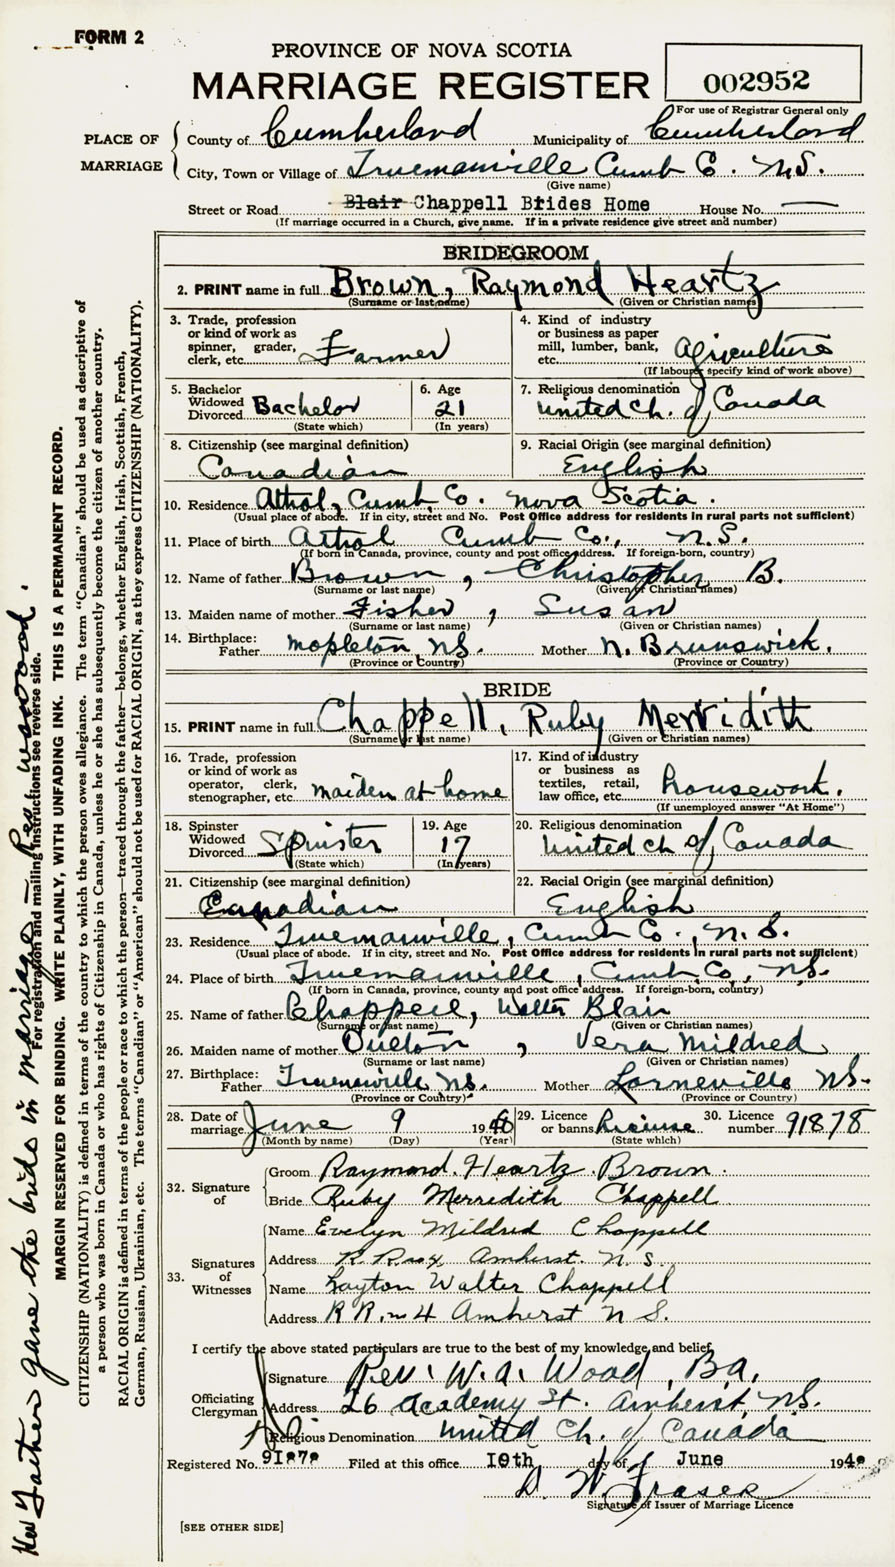 FORM 2
PROVINCE OF NOVA SCOTIA
MARRIAGE REGISTER
002952
For use of Registrar General only
PLACE OF MARRIAGE
County of Cumberland Municipality of Cumberland
City, Town or Village of Truemanville Cumb Co. N.S.
(Give name)
Street or Road Blair Chappell Brides Home House No.
(If marriage occurred in a Church, give name. If in a private residence give street and number)
BRIDEGROOM
2. PRINT name in full Brown, Raymond Heartz
(Surname or last name) (Given or Christian names)
3. Trade, profession or kind of work as spinner, grader, clerk, etc. Farmer
4. Kind of industry or business as paper mill, lumber, bank, etc. Agriculture
(If labourer specify kind of work above)
5. Bachelor Widowed Divorced Bachelor
(State which)
6. Age 21
(In years)
7. Religious denomination United Ch. of Canada
8. Citizenship (see marginal definition) Canadian
9. Racial Origin (see marginal definition) English
10. Residence Athol, Cumb. Co. Nova Scotia.
(Usual place of abode. If in city, street and No. Post Office address for residents in rural parts not sufficient)
11. Place of birth Athol Cumb Co., N.S.
(If born in Canada, province, county and post office address. If foreign-born, country)
12. Name of father Brown, Christopher B.
(Surname or last name) (Given or Christian names)
13. Maiden name of mother Fisher, Susan
(Surname or last name) (Given or Christian names)
14. Birthplace: Father Mapleton, NS. Mother N. Brunswick.
(Province or Country) (Province or Country)
BRIDE
15. PRINT name in full Chappell, Ruby Merridith
(Surname or last name) (Given or Christian names)
16. Trade, profession or kind of work as operator, clerk, stenographer, etc. maiden at home
17. Kind of industry or business as textiles, retail, law office, etc. housework.
(If unemployed answer "At Home")
18. Spinster Widowed Divorced Spinster
(State which)
19. Age 17
(In years)
20. Religious denomination United Ch of Canada
21. Citizenship (see marginal definition) Canadian
22. Racial Origin (see marginal definition) English
23. Residence Truemanville, Cumb Co., N.S.
(Usual place of abode. If in city, street and No. Post Office address for residents in rural parts not sufficient)
24. Place of birth Truemanville, Cumb, Co, NS.
(If born in Canada, province, county and post office address. If foreign-born, country)
25. Name of father Chappell, Walter Blair
(Surname or last name) (Given or Christian names)
26. Maiden name of mother Oulton, Vera Mildred
(Surname or last name) (Given or Christian names)
27. Birthplace: Father Truemanville NS. Mother Lorneville NS.
(Province or Country) (Province or Country)
28. Date of marriage June 9 1940
(Month by name) (Day) (Year)
29. Licence or banns License
(State which)
30. Licence number 91878
32. Signature of
Groom Raymond Heartz Brown.
Bride Ruby Merredith Chappell
33. Signatures of Witnesses
Name Evelyn Mildred Chappell
Address R. R. no 4 Amherst. N. S.
Name Layton Walter Chappell
Address R R. no 4 Amherst N S.
I certify the above stated particulars are true to the best of my knowledge and belief.
Officiating Clergyman
Signature Rev. W. A. Wood, B.A.
Address 26 Academy St. Amherst, NS.
Religious Denomination United Ch. of Canada
Registered No. 91878 Filed at this office 10th day of June 1940
D. W. Fraser
Signature of Issuer of Marriage Licence
[SEE OTHER SIDE]
Her Father gave the bride in marriage – Rev. W.A. Wood.
For registration and mailing instructions see reverse side.
MARGIN RESERVED FOR BINDING. WRITE PLAINLY, WITH UNFADING INK. THIS IS A PERMANENT RECORD.
CITIZENSHIP (NATIONALITY) is defined in terms of the country to which the person owes allegiance. The term "Canadian" should be used as descriptive of
a person who was born in Canada or who has rights of Citizenship in Canada, unless he or she has subsequently become the citizen of another country.
RACIAL ORIGIN is defined in terms of the people or race to which the person—traced through the father—belongs, whether English, Irish, Scottish, French,
German, Russian, Ukrainian, etc. The terms "Canadian" or "American" should not be used for RACIAL ORIGIN, as they express CITIZENSHIP (NATIONALITY).